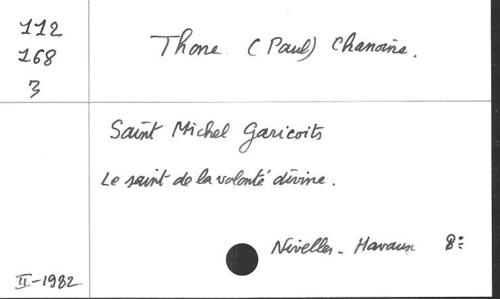 112
168
3
Thone (Paul) Chanoine.
Saint Michel Garicoits
Le saint de la volonté divine.
Nivelles - Havaux 8°
II-1982